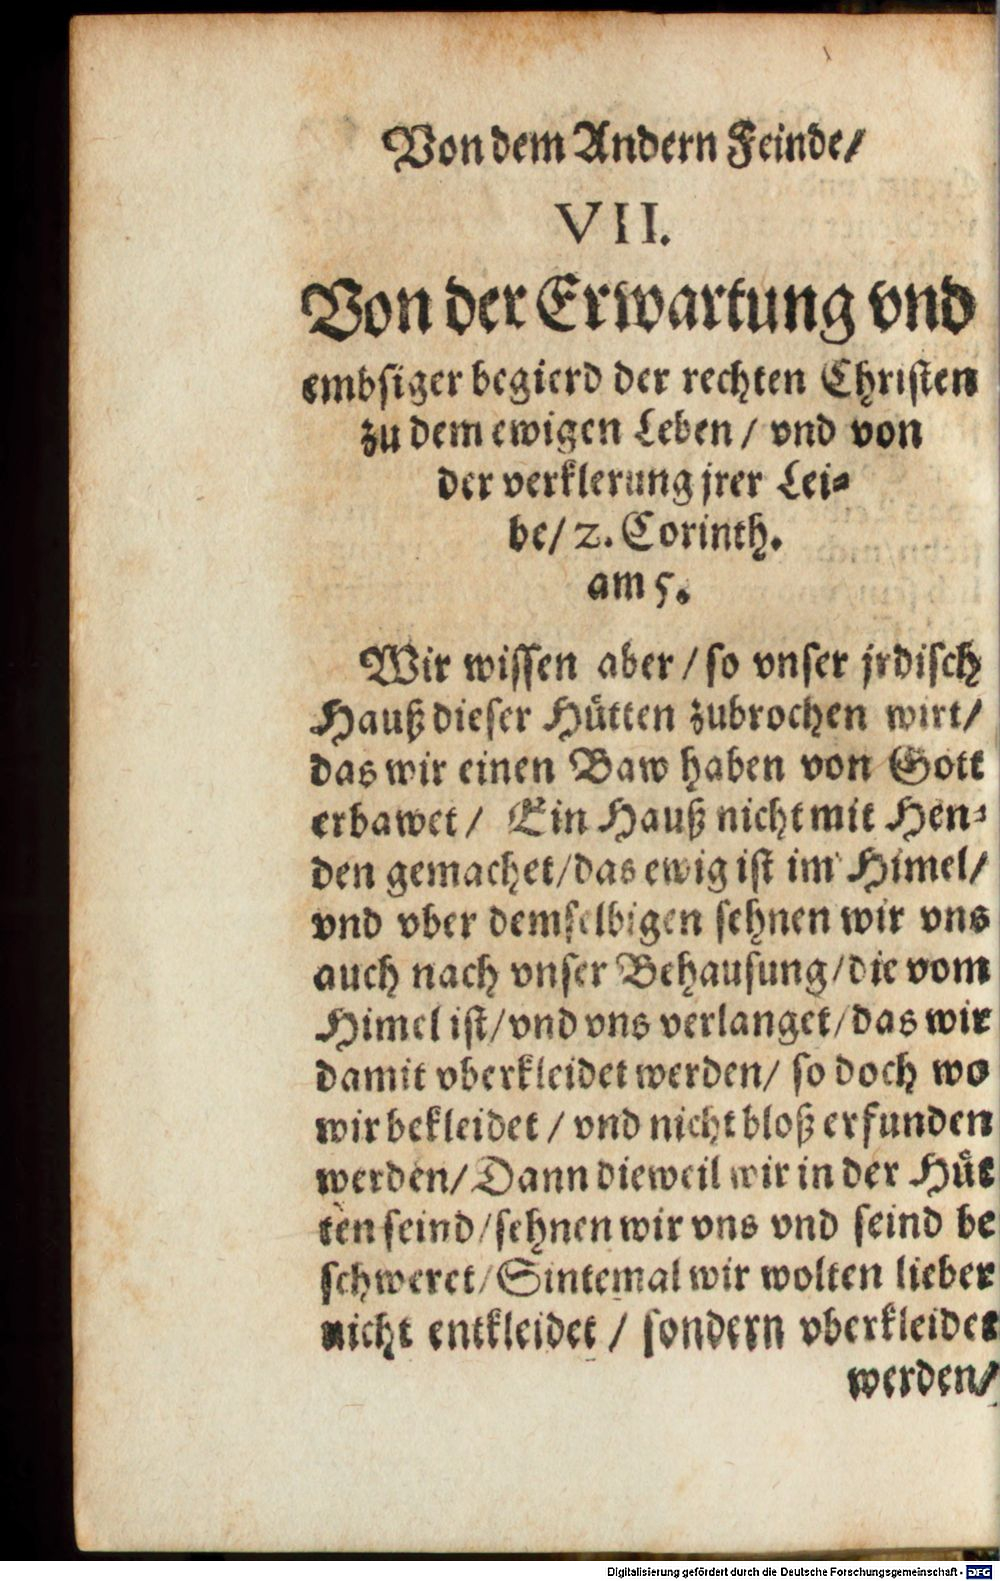 Von dem Andern Feinde/
VII.
Von der Erwartung vnd
embsiger begierd der rechten Christen
zu dem ewigen Leben / vnd von
der verklerung jrer Lei⸗
be/ 2. Corinth.
am 5.
Wir wissen aber / so vnser jrdisch
Hauß dieser Hütten zubrochen wirt/
das wir einen Baw haben von Gott
erbawet / Ein Hauß nicht mit Hen⸗
den gemachet/das ewig ist im Himel/
vnd vber demselbigen sehnen wir vns
auch nach vnser Behausung/die vom
Himel ist/vnd vns verlanget/das wir
damit vberkleidet werden/ so doch wo
wir bekleidet / vnd nicht bloß erfunden
werden/Dann dieweil wir in der Hüt
ten seind/sehnen wir vns vnd seind be
schweret/Sintemal wir wolten lieber
nicht entkleidet / sondern vberkleidet
werden/
Digitalisierung gefördert durch die Deutsche Forschungsgemeinschaft - DFG